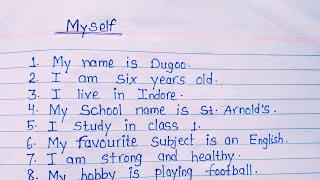 Myself
1. My name is Dugoo.
2. I am six years old.
3. I live in Indore.
4. My School name is St. Arnold's.
5. I study in class 1.
6. My favourite subject is an English.
7. I am strong and healthy.
8. My hobby is playing football.